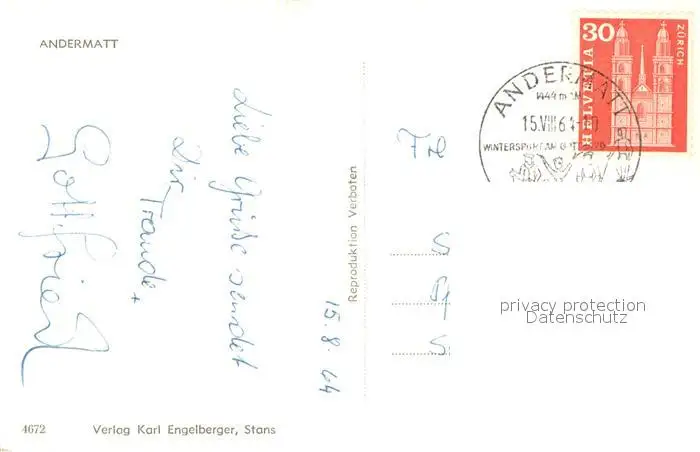 ANDERMATT
15.8.64
Liebe Grüße sendet
Dir
Traude +
Gottfried
4672 Verlag Karl Engelberger, Stans
Reproduktion Verboten
30
HELVETIA
ZÜRICH
ANDERMATT
1444 m
15.VIII.64
WINTERSPORT AM
privacy protection
Datenschutz